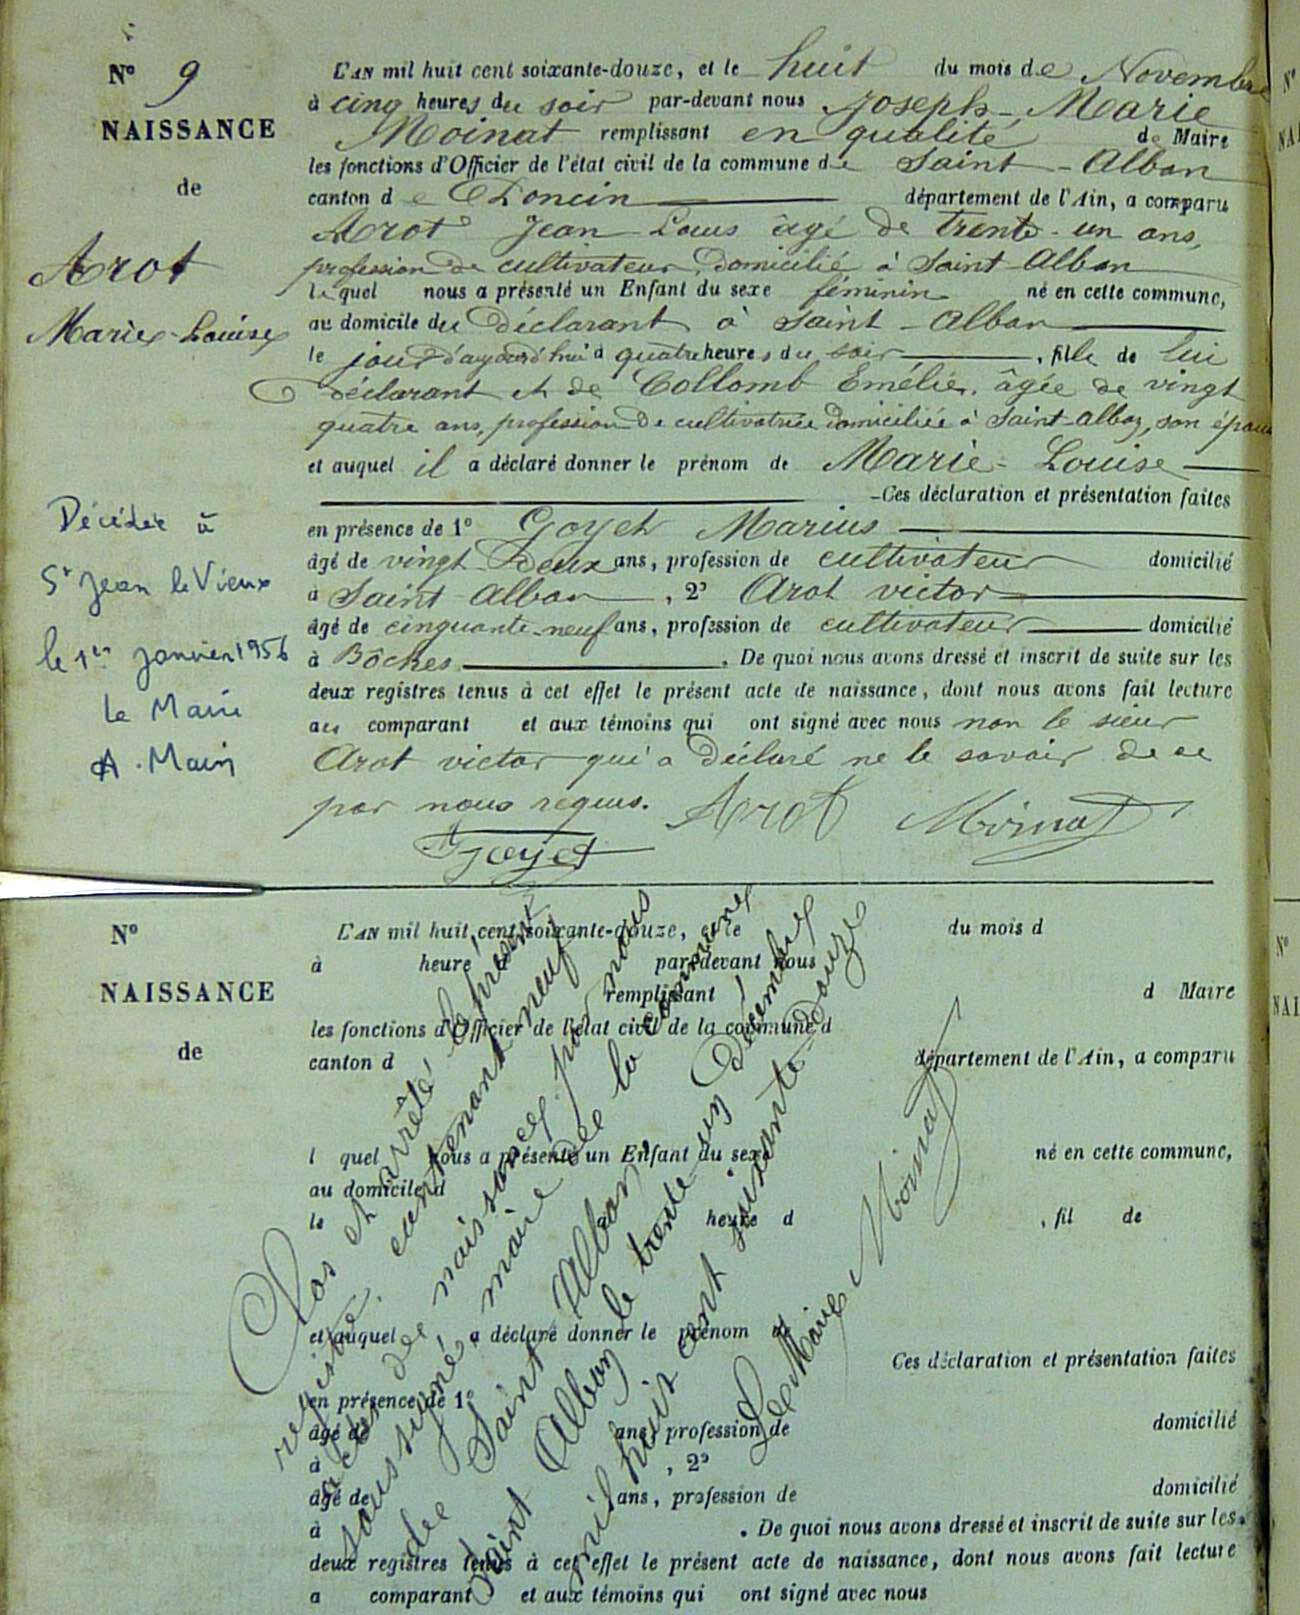 N° 9
NAISSANCE
de
Arot
Marie-Louise
Décédée à
St Jean le Vieux
le 1er janvier 1956
Le Maire
A. Main
L'AN mil huit cent soixante-douze, et le huit du mois de Novembre
à cinq heures du soir par-devant nous Joseph-Marie
Moinat remplissant en qualité de Maire
les fonctions d'Officier de l'état civil de la commune de Saint-Alban
canton de Poncin département de l'Ain, a comparu
Arot Jean Louis âgé de trente-un ans,
profession de cultivateur domicilié à Saint-Alban
lequel nous a présenté un Enfant du sexe féminin né en cette commune,
au domicile du déclarant à Saint Alban
le jour d'aujourd'hui à quatre heures du soir, fille de lui
déclarant et de Collomb Emélie, âgée de vingt
quatre ans, profession de cultivatrice domiciliée à Saint-Alban, son épouse
et auquel il a déclaré donner le prénom de Marie-Louise
Ces déclaration et présentation faites
en présence de 1° Goyet Marius
âgé de vingt deux ans, profession de cultivateur domicilié
à Saint-Alban, 2° Arot victor
âgé de cinquante-neuf ans, profession de cultivateur domicilié
à Bôches. De quoi nous avons dressé et inscrit de suite sur les
deux registres tenus à cet effet le présent acte de naissance, dont nous avons fait lecture
au comparant et aux témoins qui ont signé avec nous non le sieur
Arot victor qui a déclaré ne le savoir de ce
par nous requis. Arot Moinat
Goyet
N°
NAISSANCE
de
L'AN mil huit cent soixante-douze, et le du mois d
à heure d par-devant nous
remplissant d Maire
les fonctions d'Officier de l'état civil de la commune d
canton d département de l'Ain, a comparu
l quel nous a présenté un Enfant du sexe né en cette commune,
au domicile d
le à heure d , fil de
et auquel a déclaré donner le prénom de
Ces déclaration et présentation faites
en présence de 1°
âgé de ans, profession de domicilié
à , 2°
âgé de ans, profession de domicilié
à . De quoi nous avons dressé et inscrit de suite sur les
deux registres tenus à cet effet le présent acte de naissance, dont nous avons fait lecture
a comparant et aux témoins qui ont signé avec nous
Clos et arrêté le présent
registre contenant neuf
actes de naissances, par nous
soussigné, maire de la commune
de Saint Alban,
Saint Alban le trente-un décembre
mil huit cent soixante-douze
Le Maire Moinat
N°
NAI
N°
NAI